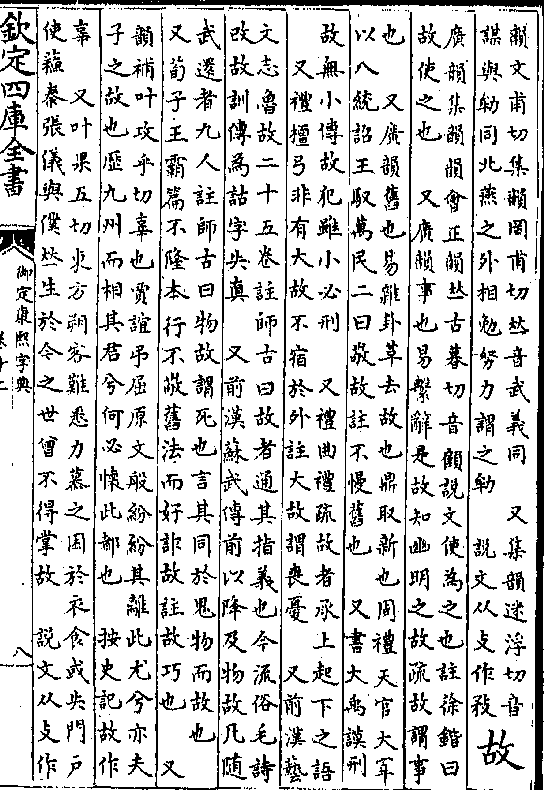 韻文甫切集韻罔甫切𠀤音武義同　又集韻迷浮切音
謀與勄同北燕之外相勉努力謂之勄　說文从攴作敄
故
廣韻集韻韻會正韻𠀤古暮切音顧說文使為之也註徐鍇曰
故使之也　又廣韻事也易繫辭是故知幽明之故疏故謂事
也　又廣韻舊也易雜卦革去故也鼎取新也周禮天官大宰
以八統詔王馭萬民二曰敬故註不慢舊也　又書大禹謨刑
故無小傳故犯雖小必刑　又禮曲禮疏故者承上起下之語
又禮檀弓非有大故不宿於外註大故謂喪憂　又前漢藝
文志魯故二十五卷註師古曰故者通其指義也今流俗毛詩
改故訓傳為詁字失真　又前漢蘇武傳前以降及物故凡隨
武還者九人註師古曰物故謂死也言其同於鬼物而故也
又荀子王霸篇不隆本行不敬舊法而好詐故註故巧也　又
韻補叶攻乎切辜也賈誼弔屈原文般紛紛其離此尤兮亦夫
子之故也歷九州而相其君兮何必懷此都也　按史記故作
辜　又叶果五切東方朔客難悉力慕之困於衣食或失門戶
使蘇秦張儀與僕𠀤生於今之世曾不得掌故　說文从攴作
欽定四庫全書
御定康熙字典
八